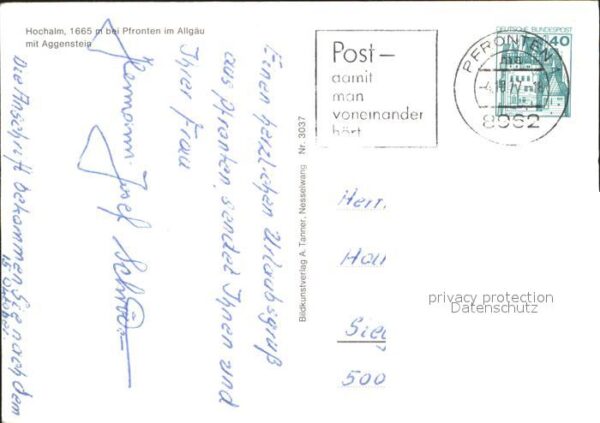 Hochalm, 1665 m bei Pfronten im Allgäu
mit Aggenstein
Einen herzlichen Urlaubsgruß
aus Pfronten, sendet Ihnen und
Ihrer Frau
Hermann Josef
Die Anschrift bekommen Sie nach dem
15 Oktober.
Bildkunstverlag A. Tanner, Nesselwang Nr. 3037
Post –
damit
man
voneinander
hört
PFRONTEN 1
8962
DEUTSCHE BUNDESPOST
40
Herr.
Hau
Sie
500
privacy protection
Datenschutz